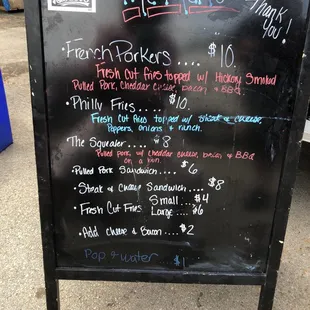 Thank
you!
• French Porkers .... $10.
Fresh Cut Fries topped w/ Hickory Smoked
Pulled Pork, Cheddar cheese, bacon & BBQ
• Philly Fries.... $10.
Fresh Cut fries topped w/ steak & cheese,
Peppers, onions & ranch.
The Squealer.... $8
Pulled pork w/ cheddar cheese, bacon & BBQ
on a bun.
• Pulled Pork Sandwich.... $6
• Steak & Cheese Sandwich.... $8
• Fresh Cut Fries Small... $4
Large.... $6
• Add Cheese & Bacon.... $2
Pop & water $1